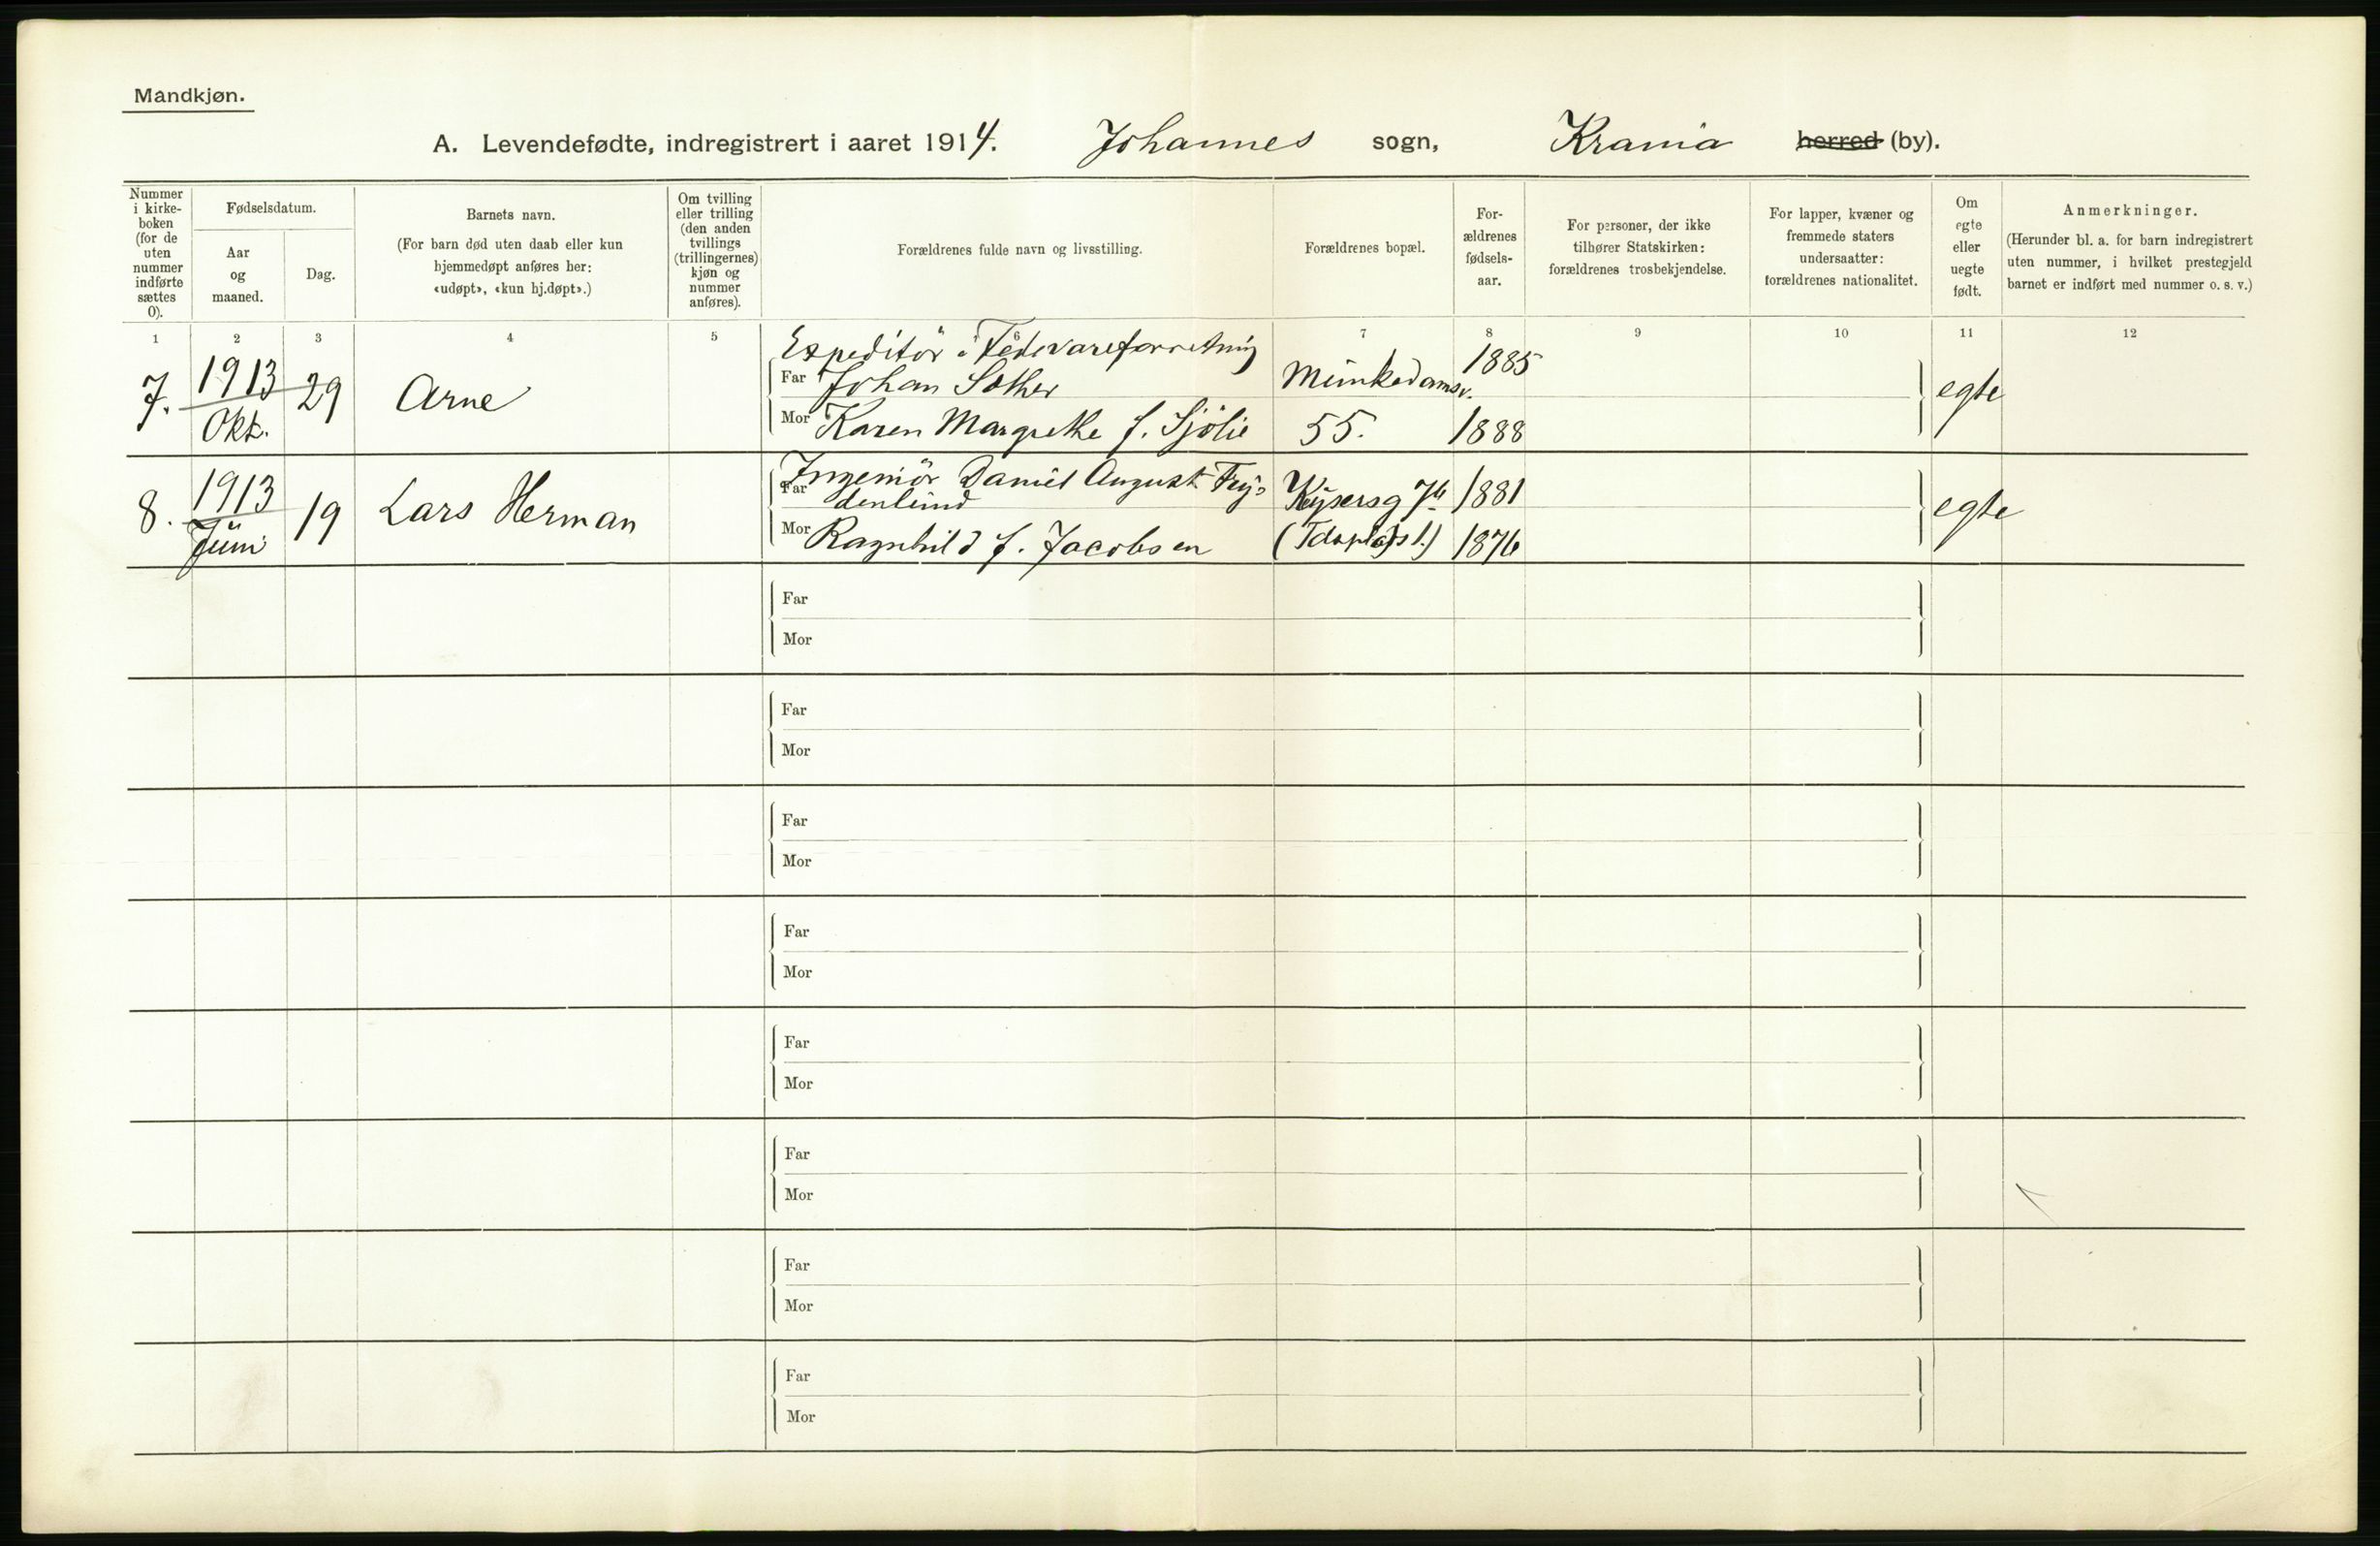 Mandkjøn.
A. Levendefødte, indregistrert i aaret 1914. Johannes sogn, Krania herred (by).
Nummer i kirke-boken (for de uten nummer indførte sættes 0).
Fødselsdatum.
Aar og maaned.
Dag.
Barnets navn.
(For barn død uten daab eller kun hjemmedøpt anføres her: «udøpt», «kun hj.døpt».)
Om tvilling eller trilling (den anden tvillings (trillingernes) kjøn og nummer anføres).
Forældrenes fulde navn og livsstilling.
Forældrenes bopæl.
For-ældrenes fødsels-aar.
For personer, der ikke tilhører Statskirken: forældrenes trosbekjendelse.
For lapper, kvæner og fremmede staters undersaatter: forældrenes nationalitet.
Om egte eller uegte født.
Anmerkninger.
(Herunder bl. a. for barn indregistrert uten nummer, i hvilket prestegjeld barnet er indført med nummer o. s. v.)
1 2 3 4 5 6 7 8 9 10 11 12
Expeditör i Fedevareforretning
7. 1913 Okt. 29 Arne
Far Johan Sother Munkedamsv. 1885 egte
Mor Karen Margrethe f. Sjölie 55. 1888
8. 1913 Juni 19 Lars Herman
Far Ingeniör Daniel August Fry=
denlund Keysersg 7b 1881 egte
Mor Ragnhild f. Jacobsen 1876
Far
Mor
Far
Mor
Far
Mor
Far
Mor
Far
Mor
Far
Mor
Far
Mor
Far
Mor